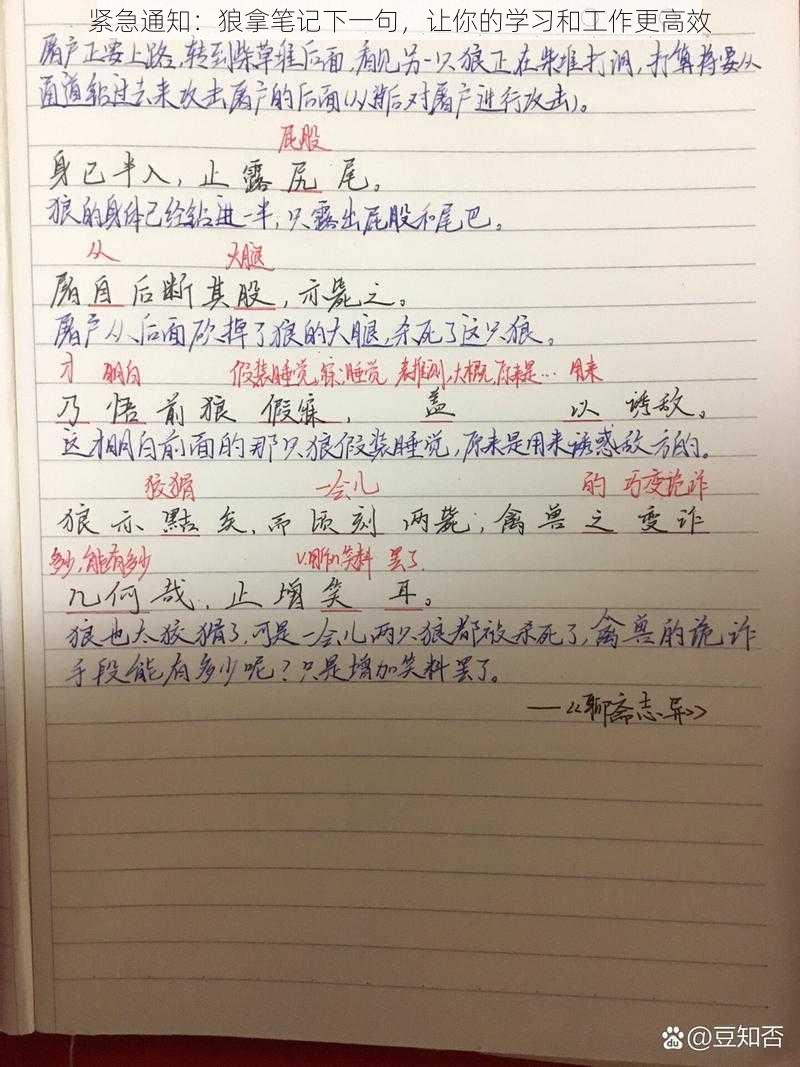 紧急通知：狼拿笔记下一句，让你的学习和工作更高效
屠户正要上路，转到柴草堆后面，看见另一只狼正在柴堆打洞，打算将要从
通道钻过去来攻击屠户的后面（从背后对屠户进行攻击）。
屁股
身已半入，止露尻尾。
狼的身体已经钻进一半，只露出屁股和尾巴。
从 大腿
屠自后断其股，亦毙之。
屠户从后面砍掉了狼的大腿，杀死了这只狼。
才 明白 假装睡觉，寐：睡觉 表推测，大概，原来是… 用来
乃悟前狼假寐，盖以诱敌。
这才明白前面的那只狼假装睡觉，原来是用来诱惑敌方的。
狡猾 一会儿 的 巧变诡诈
狼亦黠矣，而顷刻两毙，禽兽之变诈
多少，能有多少 笑料 罢了
几何哉，止增笑耳。
狼也太狡猾了，可是一会儿两只狼都被杀死了，禽兽的诡诈
手段能有多少呢？只是增加笑料罢了。
——《聊斋志异》
Bai du @豆知否